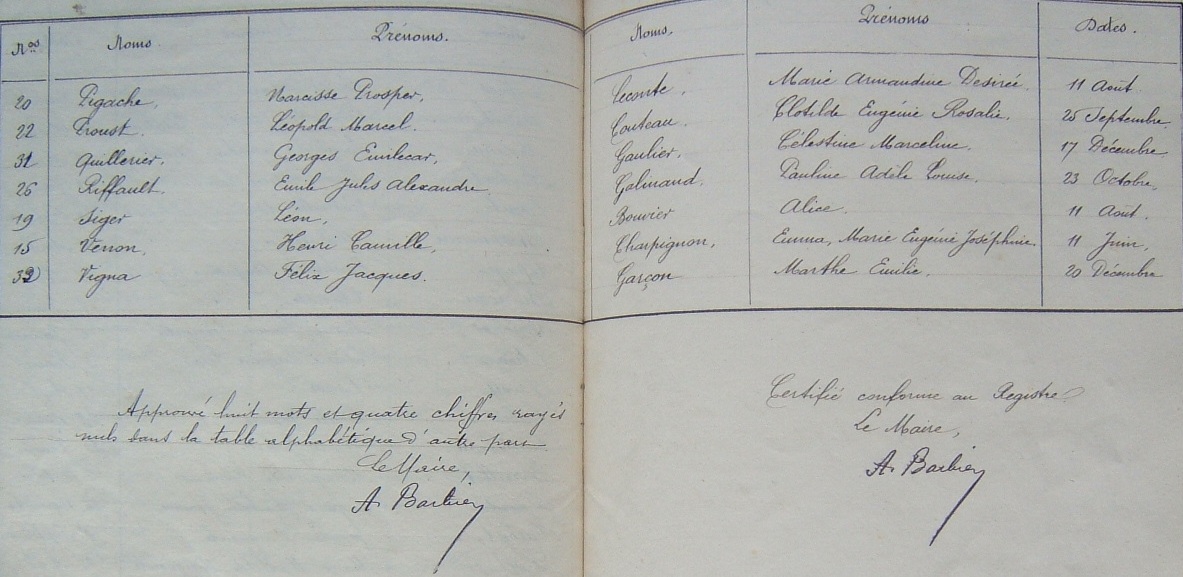 Nos Noms. Prénoms. Noms. Prénoms Dates.
20 Pigache, Narcisse Prosper, Leconte, Marie Armandine Desirée 11 Août
22 Proust. Léopold Marcel. Couteau. Clotilde Eugénie Rosalie. 25 Septembre
31 Quillerier. Georges Gaulier, Célestine Marceline. 17 Décembre
26 Riffault. Emile Jules Alexandre Galmand, Pauline Adèle Louise. 23 Octobre,
19 Siger Léon, Bouvier Alice. 11 Août.
15 Venon, Henri Camille, Charpignon, Emma, Marie Eugénie Joséphine. 11 Juin,
32 Vigna Félix Jacques. Garçon Marthe Emilie. 20 Décembre
Approuvé huit mots et quatre chiffres rayés
nuls dans la table alphabétique d'autre part
Le Maire,
A. Barbier
Certifié conforme au Registre
Le Maire,
A. Barbier